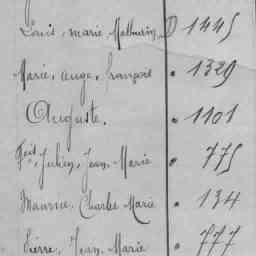 Louis, marie, Mathurin, D 1445
Marie, ange, françois " 1329
Auguste. " 1101
Fçois, Julien, Jean, Marie " 775
Maurice, Charles Marie " 134
Pierre, Jean, Marie " 777